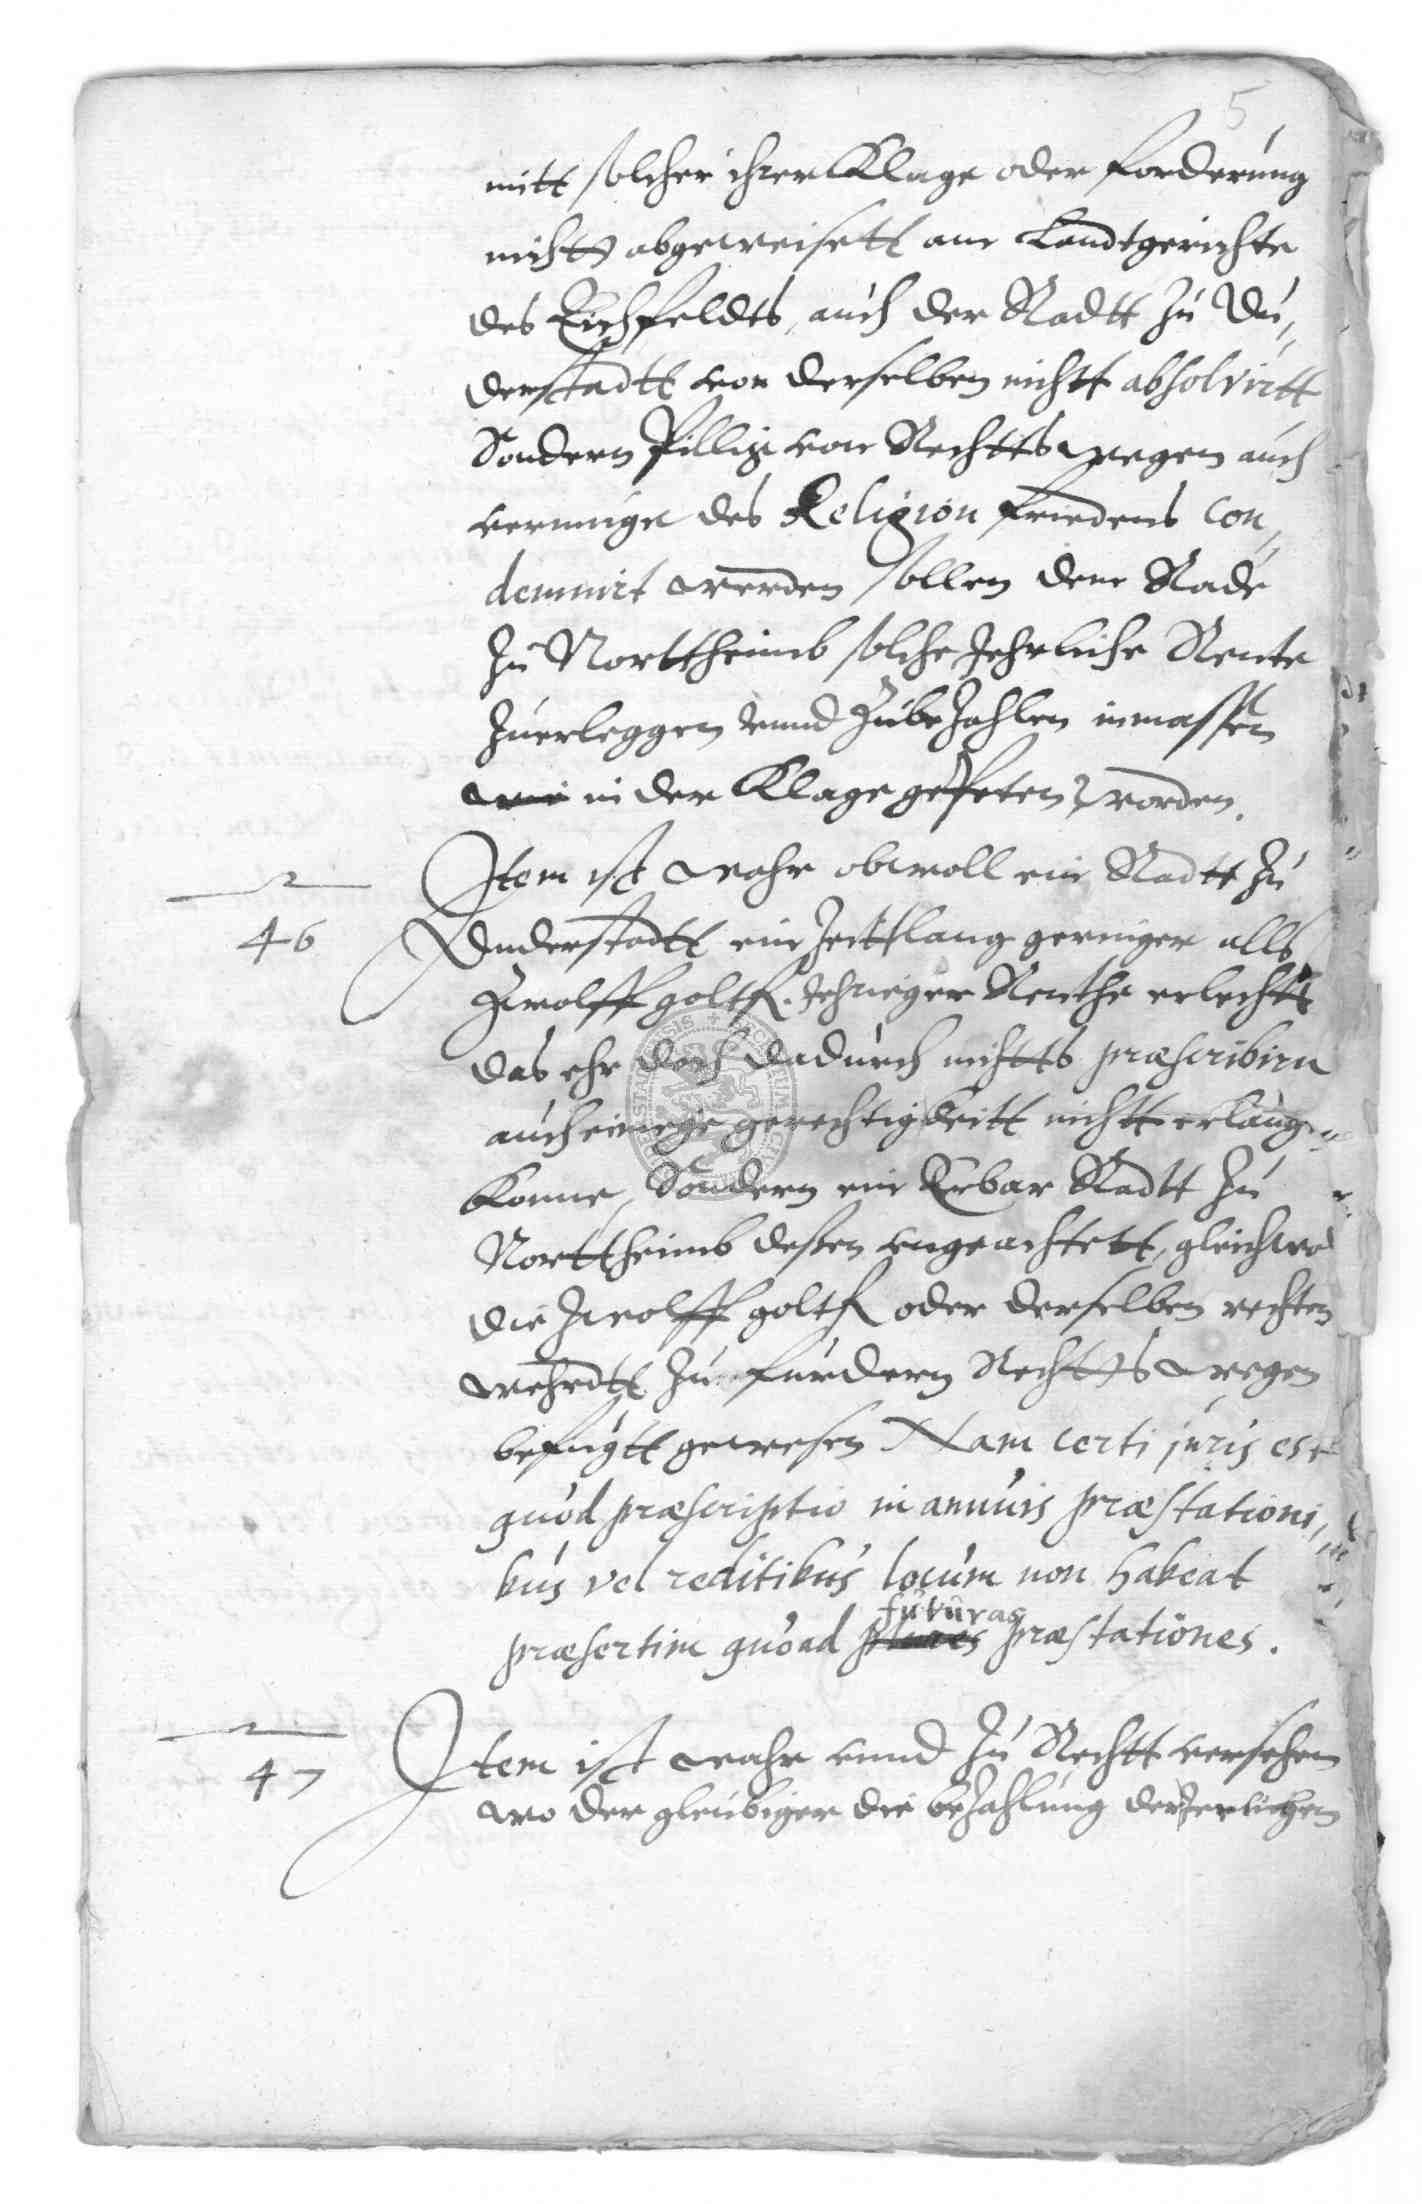 5
mitt solcher ihrer Klage oder forderung
nichtt abgeweisett am Landtgerichte
des Eichsfeldts, auch der Radtt zu Du,,
derstadtt von derselben nichtt absolvirtt
Sondern pillig von Rechtts wegen auch
vermuge des Religion friedens con,,
demnirt werden sollen dem Rade
zu Norttheimb solche Jehrliche Rente
zuerleggen vnnd zubezahlen inmassen
wie in der Klage gepeten worden.
Item ist wahr obwoll ein Radtt zu
46
Duderstadtt ein zeittlang geringer alls
zwolff goltfl. Jehriger Renthe erlechtt
das ehr doch dadurch nichtts præscribirn
auch einege gerechtigkeitt nichtt erlang,,
konne, Sondern ein Erbar Radtt zu
Norttheimb deßen vngeachtett, gleichwo
die zwolff goltfl oder derselben rechten
wehrdtt zu furdern Rechtts wegen
befugtt gewesen Nam certi juris est
quod præscriptio in annuis præstationi,,
bus vel reditibus locum non habeat
futuras
præsertim quoad præstationes.
47
Item ist wahr vnnd zu Rechtt versehen
wo der gleubiger die bezahlung der Jerlichen